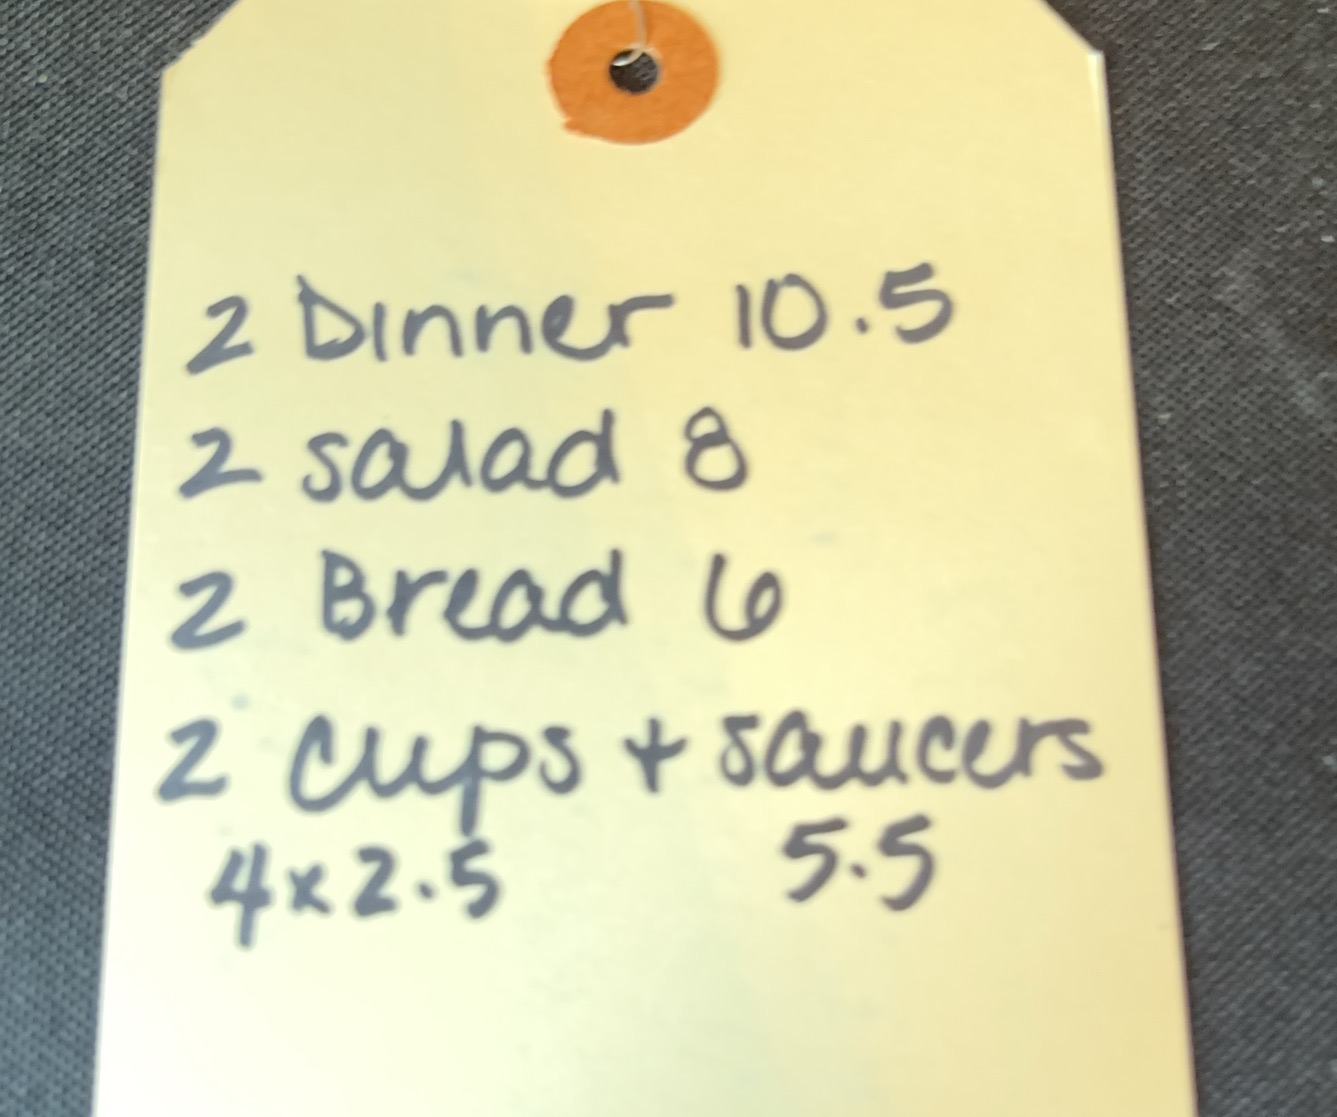 2 Dinner 10.5
2 salad 8
2 Bread 6
2 cups + saucers
4x2.5 5.5